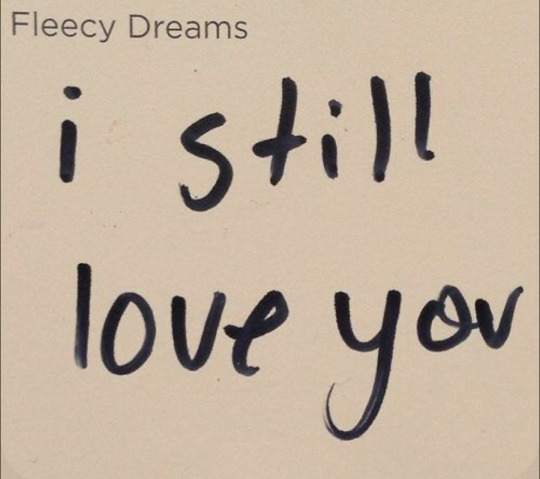 Fleecy Dreams
i still
love you